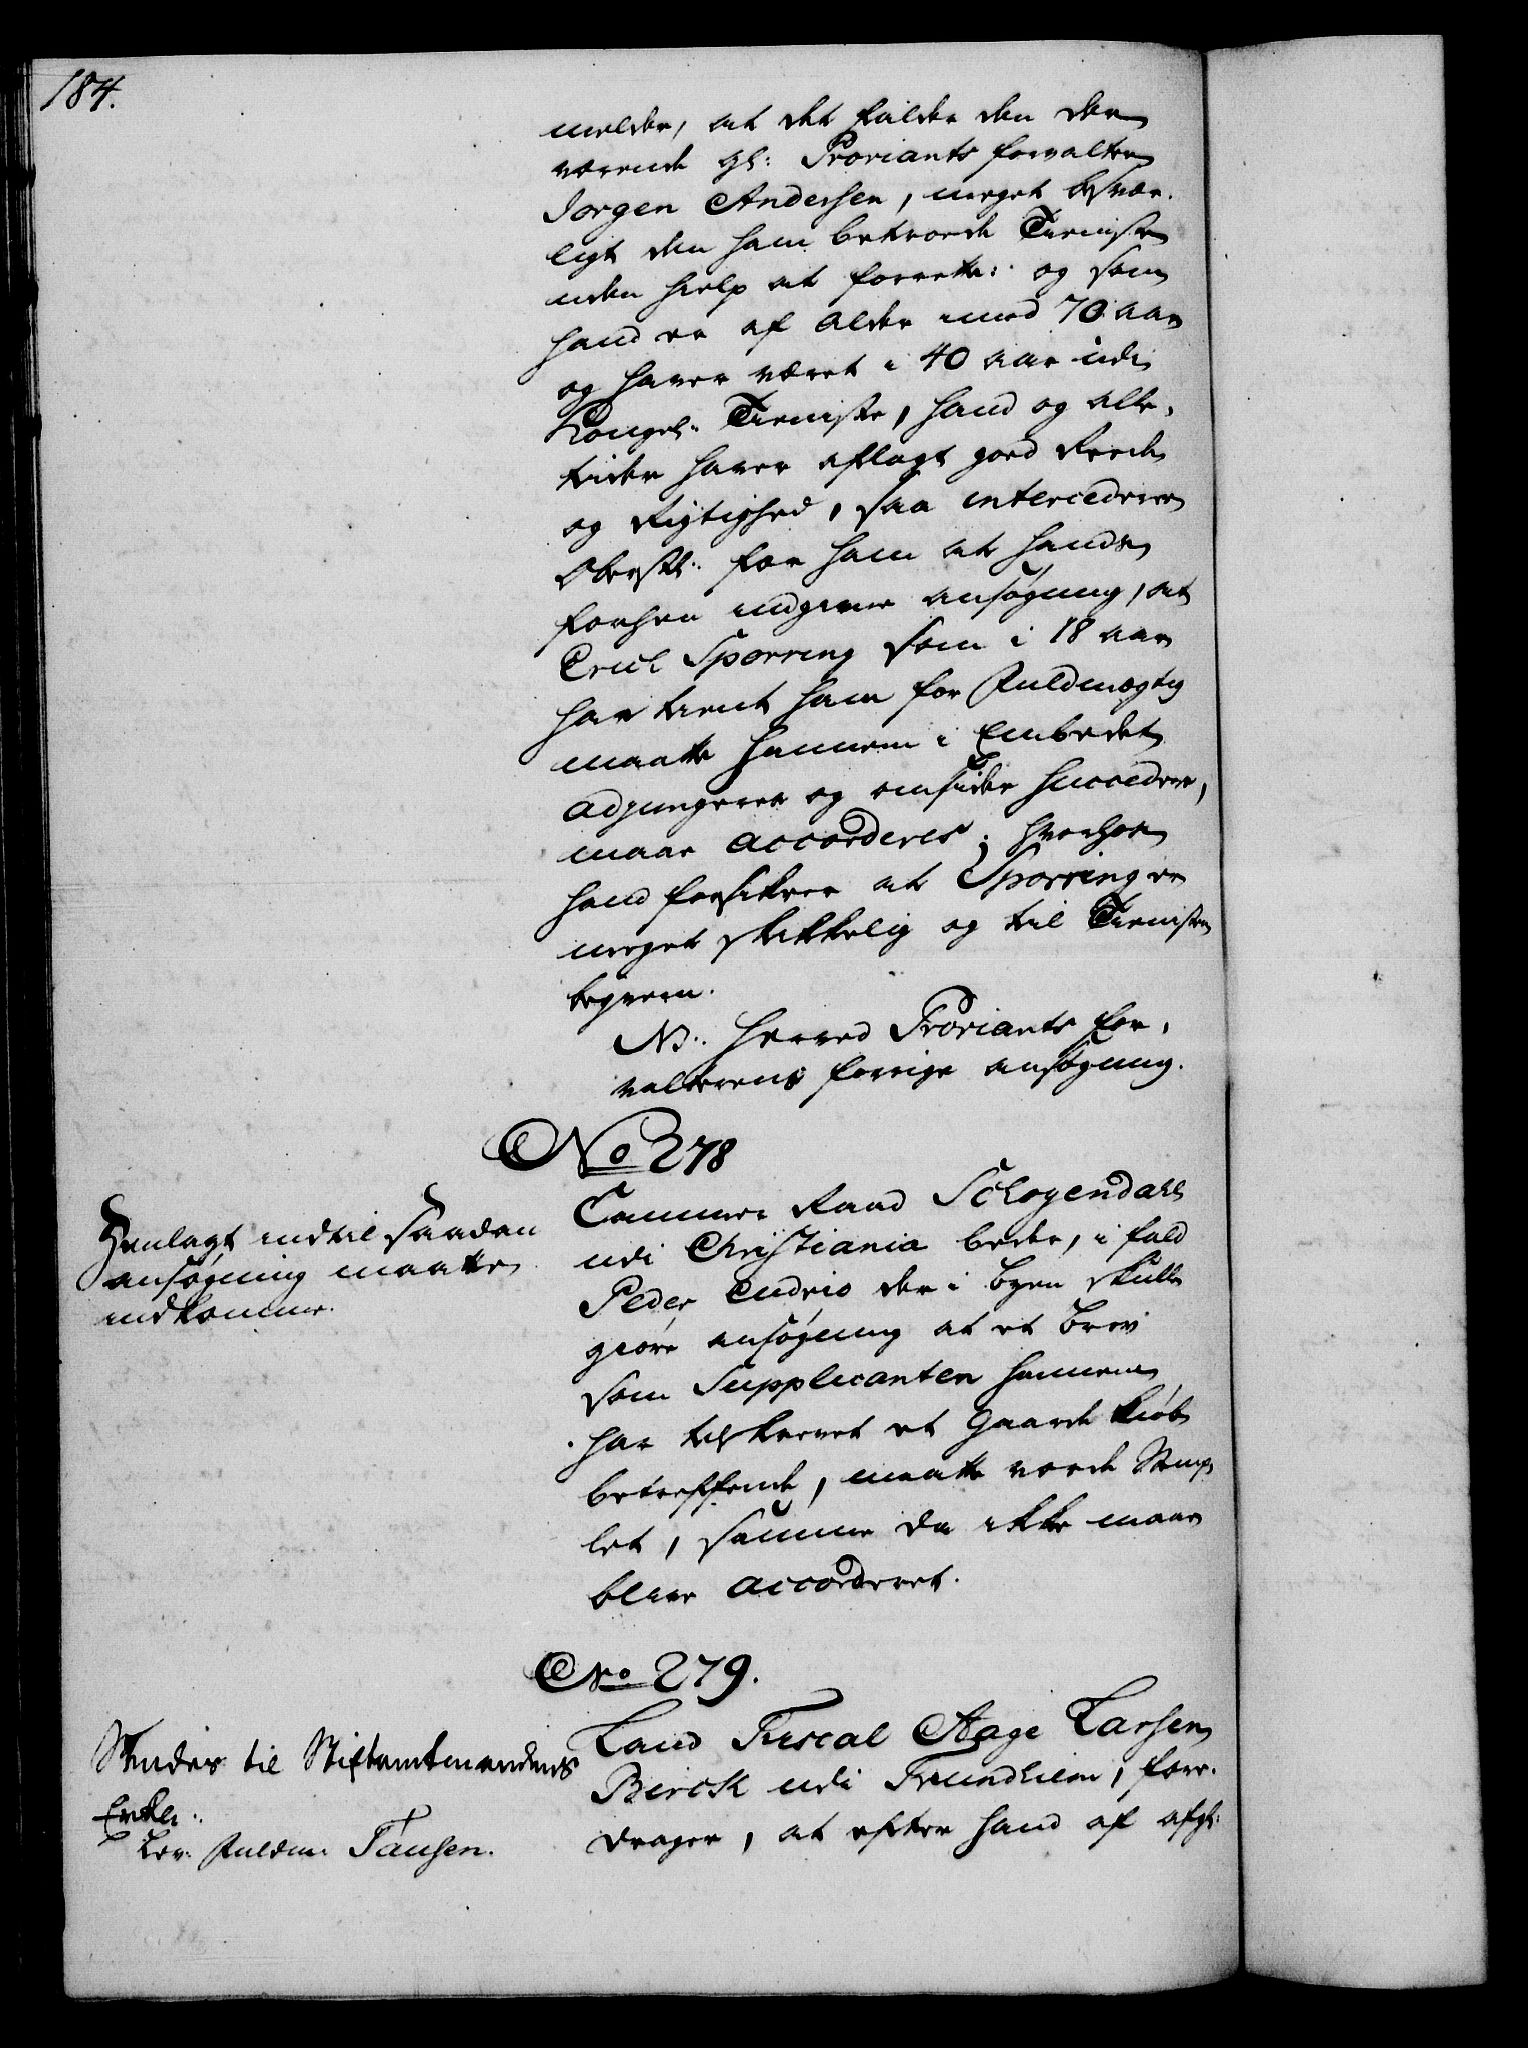 184.
melder, at det falder den der
værende gl: Proviants forvalter
Jørgen Andersen, meget besvær-
ligt den ham betroede Tieniste
uden hielp at forrette: og som
hand er af Alder imod 70 aar
og haver været i 40 aar udi
Kongel: Tieniste, hand og alle-
tider haver aflagt goed Reede
og Rigtighed, saa intercederer
Oberstl: for ham at hands
forhen indgivne ansøgning, at
Erich Sporring som i 18 aar
har tient ham for Fuldmægtig
maatte hannem i Embedet
adjungeres og omsider succedere,
maae accorderes; hvorhos
hand forsikrer at Sporring er
meget skikkelig og til Tienisten
beqvem.
NB: herved Proviants for-
valterens forrige ansøgning.
No 278
Henlagt indtil saadan
ansøgning maatte
indkomme.
Cammer Raad Schogendahl
udi Christiania beder, i fald
Peder Cudrio der i byen skulle
giøre ansøgning at et brev
som Supplicanten hannem
har tilskrevet et Gaarde kiøb
betreffende, maatte vorde Stemp-
let, samme da ikke maae
blive accorderet.
No 279.
Sendes til Stiftamtmandens
Erkl:
Lev: Fuldm: Tausen.
Land Fiscal Aage Larsen
Birck udi Trundhiem, fore-
drager, at efter hand af afgl: